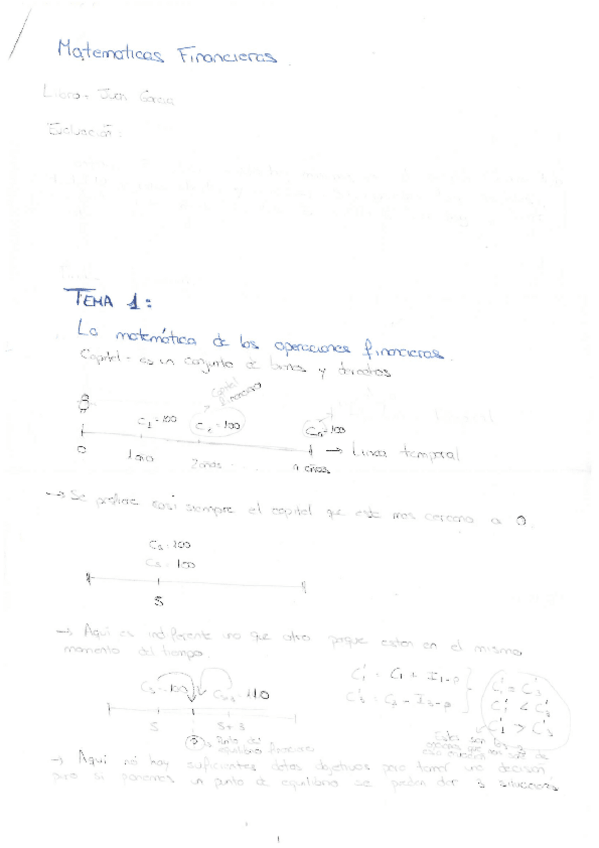 Matemáticas Financieras.
Libro: Juan García
Evaluación:
TEMA 1:
La matemática de las operaciones financieras.
Capital = es un conjunto de bienes y derechos
capital financiero
C1 = 100 C2 = 100 Cn = 100
0 1 año 2 años ... n años → Linea temporal
→ Se prefiere casi siempre el capital que este mas cercano a 0.
100
100
5
→ Aqui es indiferente uno que otro porque estan en el mismo
momento del tiempo.
100 110
5
Punto de
equilibrio financiero
C'1 = C1 + I1-p
C'1 = C'3
C'1 < C'3
C'1 > C'3
Estas son las 3
→ Aqui no hay suficientes datos objetivos para tomar una decision
pero si ponemos un punto de equilibrio se pueden dar 3 situaciones
1